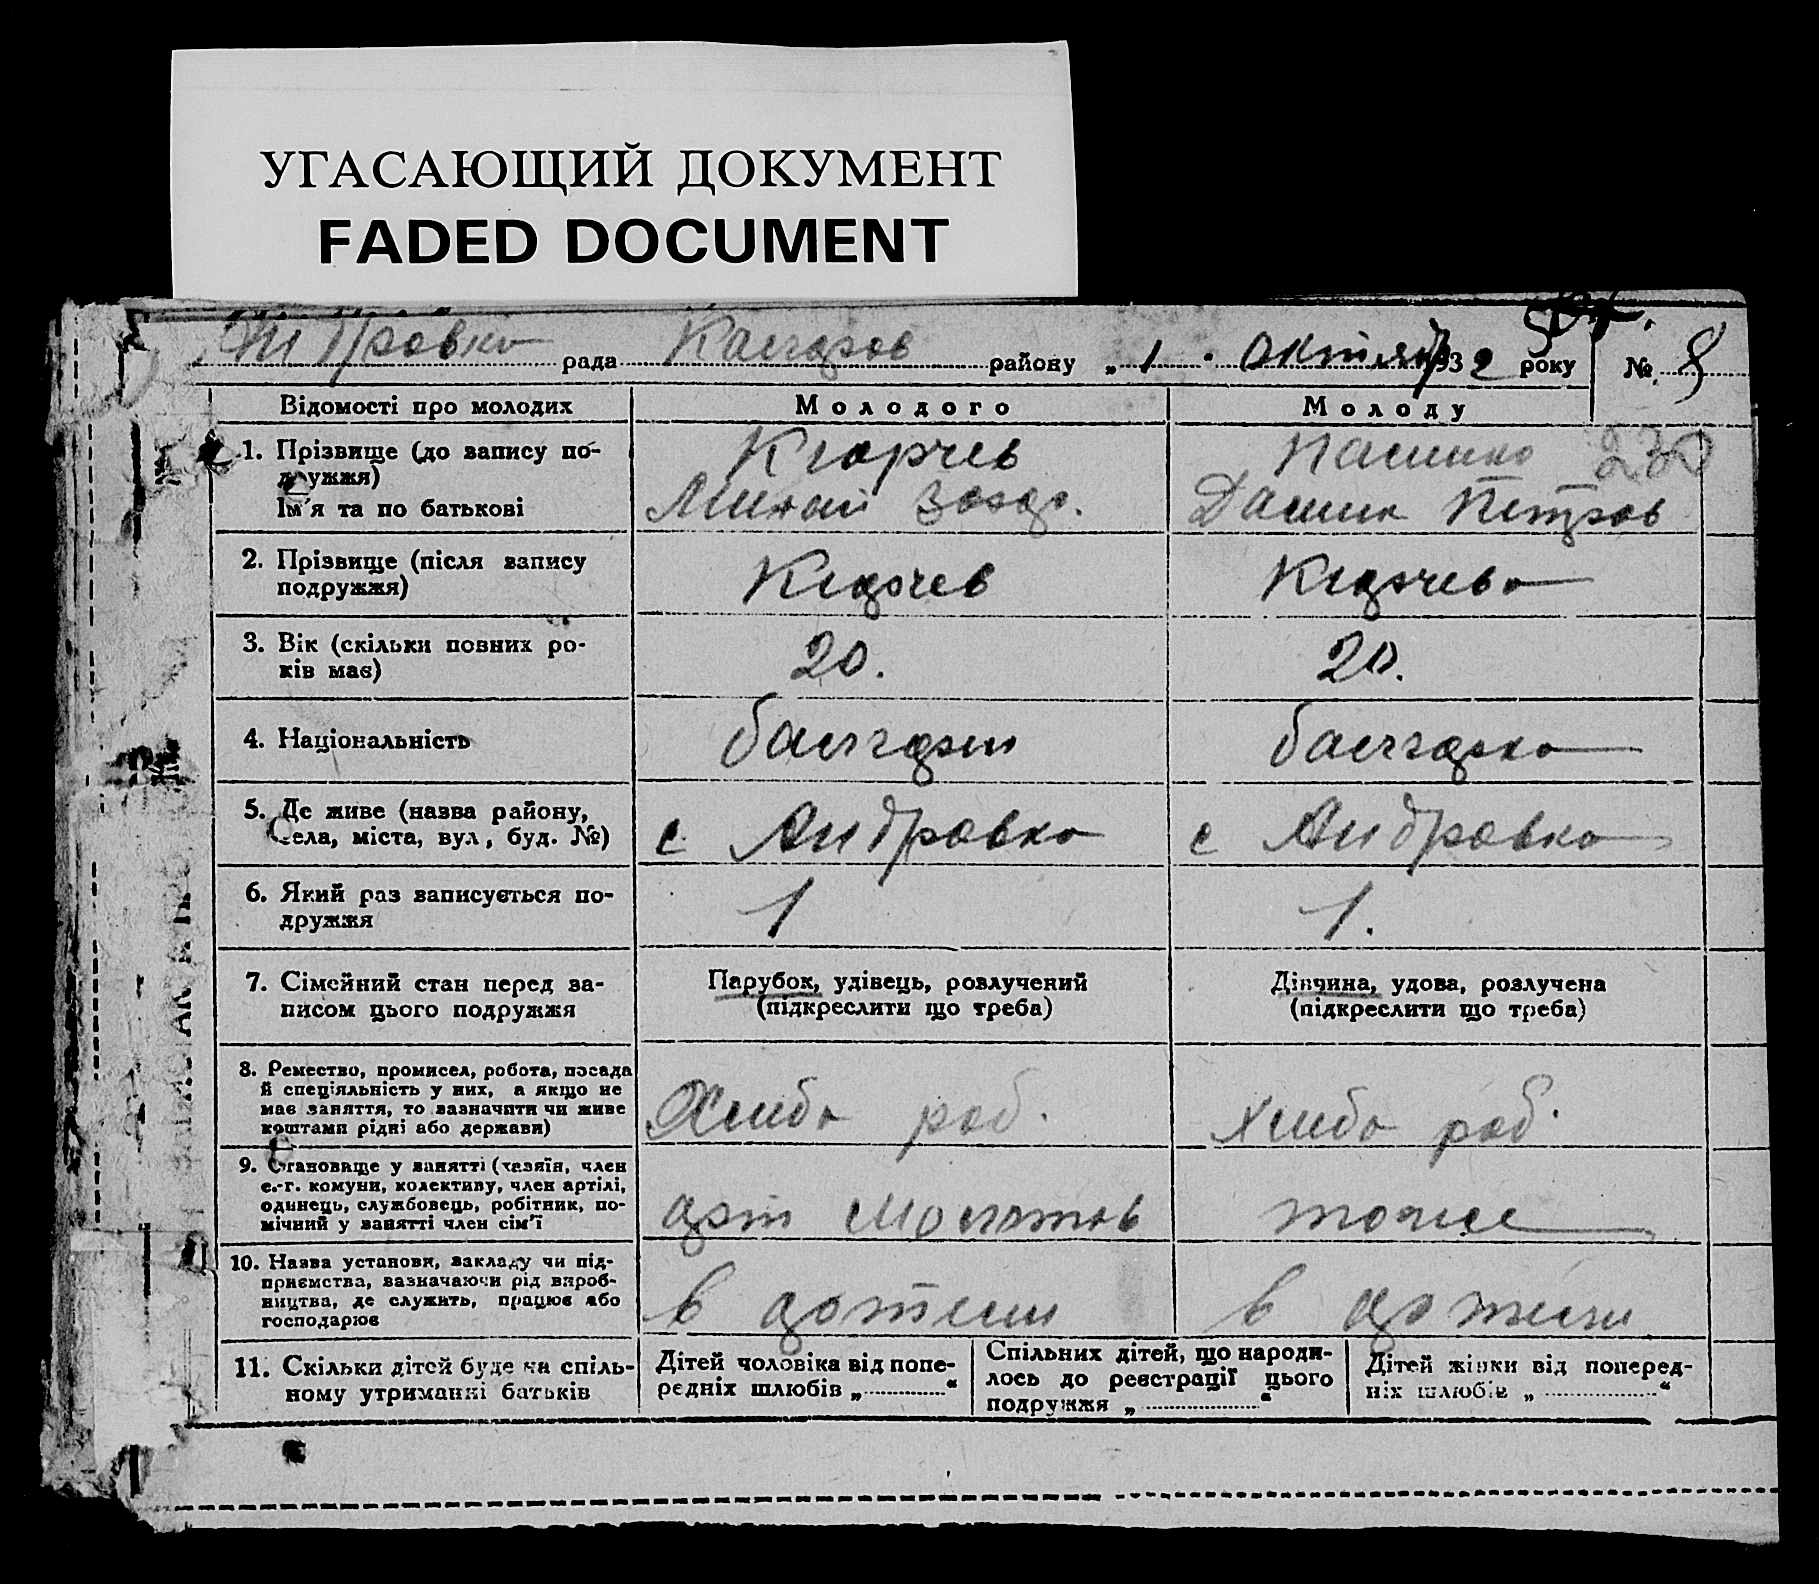 УГАСАЮЩИЙ ДОКУМЕНТ
FADED DOCUMENT
рада району „1" октяб 1932 року № 8
Відомості про молодих Молодого Молоду
230
1. Прізвище (до запису по-
дружжя)
Ім'я та по батькові
Кюрчев
Захар.
Петров
2. Прізвище (після запису
подружжя)
Кюрчев
Кюрчева
3. Вік (скільки повних ро-
ків має)
20.
20.
4. Національність
болгарин
болгарка
5. Де живе (назва району,
села, міста, вул, буд. №)
с Андровка
с Андровка
6. Який раз записується по-
дружжя
1
1.
7. Сімейний стан перед за-
писом цього подружжя
Парубок, удівець, розлучений
(підкреслити що треба)
Дівчина, удова, розлучена
(підкреслити що треба)
8. Ремество, промисел, робота, посада
й спеціяльність у них, а якщо не
має заняття, то зазначити чи живе
коштами рідні або держави)
Хлибо роб.
хлибо роб.
9. Становище у занятті (хазяїн, член
с.-г. комуни, колективу, член артілі,
одинець, службовець, робітник, по-
мічний у занятті член сім'ї
арт Молотов
тоже
10. Назва установи, закладу чи під-
приємства, зазначаючи рід вироб-
ництва, де служить, працює або
господарює
в артели
в артели
11. Скільки дітей буде на спіль-
ному утриманні батьків
Дітей чоловіка від попе-
редніх шлюбів „ “
Спільних дітей, що народи-
лось до реєстрації цього
подружжя „ “
Дітей жінки від поперед-
ніх шлюбів „ “